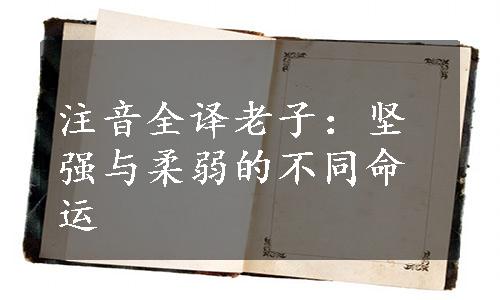 注音全译老子：坚
强与柔弱的不同命
运